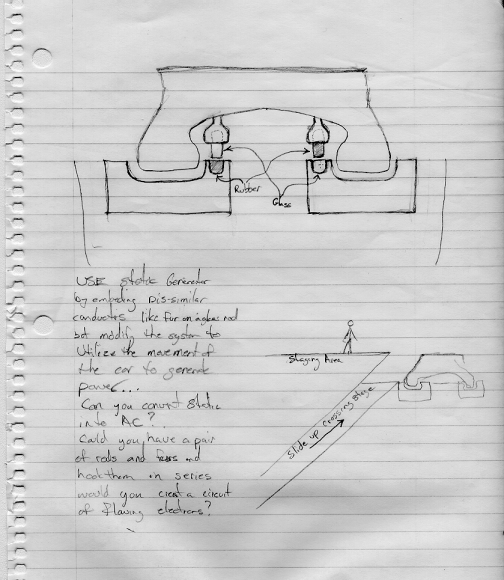 Rubber
Glass
USE static Generator
by embeding Dis-similar
conductors like fur on a glass rod
but modify the system to
Utilize the movement of
the car to generate
power...
Can you convert Static
into AC?
Could you have a pair
of rods and and
hook them in series
would you creat a circuit
of flowing electrons?
Staging Area
Slide up crossing stage